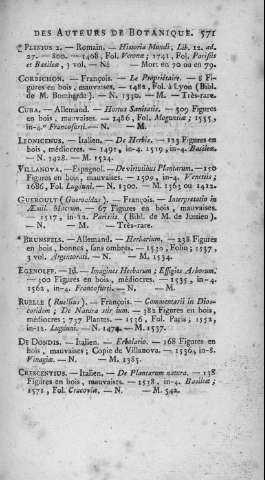 DES AUTEURS DE BOTANIQUE. 571
PLINIUS 2. — Romain. — Historia Mundi; Lib. 12. ad.
27. — 800. — 1468, Fol. Verona; 1741, Fol. Parisiis
et Basileæ, 3 vol. — Né Mort en 70 ou en 79.
CORBICHON. — François. — Le Propriétaire. — 8 Fi-
gures en bois, mauvaises, — 1482, Fol. à Lyon (Bibl.
de M. ). — N. 1330. — M. — Très-rare.
CUBA. — Allemand. — Hortus Sanitatis. — 509 Figures
en bois, mauvaises. — 1486, Fol. Moguntiæ; 1555,
in-4.° Francofurti. — N. — M.
LEONICENUS. — Italien. — De Herbis. — 123 Figures en
bois, médiocres. — 1491, in-4. 1519, in-4. Basileæ.
— N. 1428. — M. 1524.
VILLANOVA. — Espagnol. — De virtutibus Plantarum. — 150
Figures en bois, mauvaises. — 1509, in-4. Venetiis;
1686, Fol. Lugduni. — N. 1300. — M. 1363 ou 1412.
GUEROULT (Gueroaldus). — François. — Interpretatio in
Æmil. Macrum. — 67 Figures en bois, mauvaises.
— 1517, in-12. Parisiis. (Bibl. de M. de Jussieu).
— N. — M. — Très-rare.
* BRUNSFELS. — Allemand. — Herbarium. — 238 Figures
en bois, bonnes, sans ombres. — 1530, Folio; 1537,
3 vol. Argentorati. — N. — M. 1534.
EGENOLFF. — Id. — Imagines Herbarum; Effigies Arborum.
— 300 Figures en bois, médiocres. — 1535, in-4.
1562, in-4. Francofurti. — N. — M.
RUELLE (Ruellius). — François. — Commentarii in Dios-
coridem; De Natura stirpium. — 382 Figures en bois,
médiocres; 737 Plantes. — 1536, Fol. Paris; 1552,
in-12. Lugduni. — N. 1474. — M. 1537.
DE DONDIS. — Italien. — Erbolario. — 168 Figures en
bois, mauvaises; Copie de Villanova. — 1536, in-8.
— N. — M. 1385.
CRESCENTIUS. — Italien. — De Plantarum natura. — 138
Figures en bois, mauvaises. — 1538, in-4. Basileæ;
1571, Fol. Cracoviæ. — N. — M. 542.